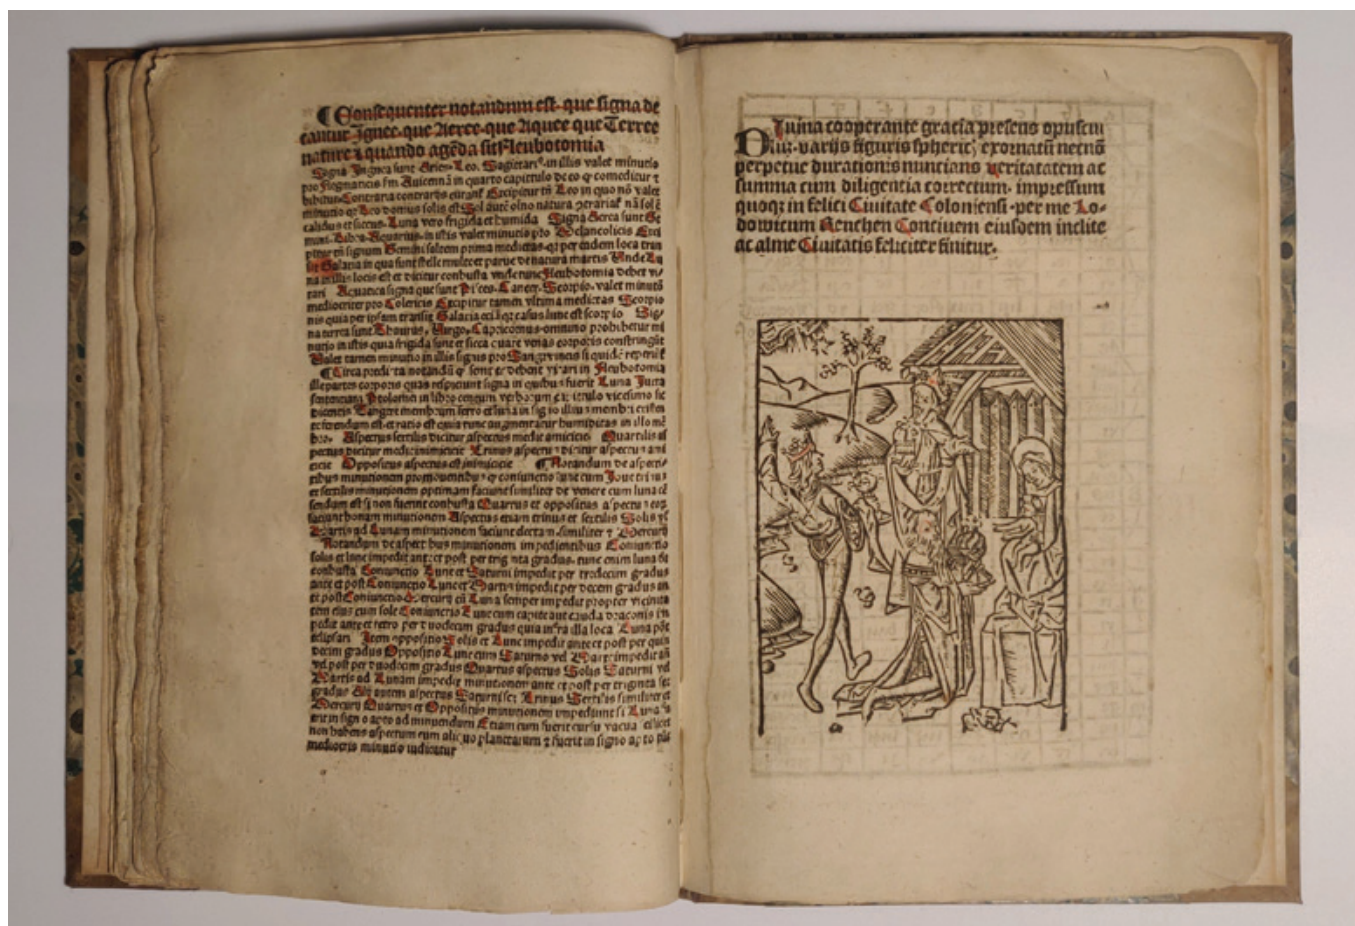 ¶ Consequenter notandum est. que signa di
cantur Ignee. que Aeree. que Aquee que Terree
nature ⁊ quando agēda sit Fleubotomia
Signa Ignea sunt Aries. Leo. Sagitari⁹. in illis valet minutio
pro flegmaticis fm Auicennā in quarto capittulo de eo ꝙ comeditur ⁊
bibitur. Contraria contrarijs curant̃ Excipitur tñ Leo in quo nō valet
minutio qꝛ Leo domus solis est Sol autē
calidus et siccus. Luna vero frigida et humida Signa Aerea sunt Ge
mini. Libra. Aquarius. in istis valet minutio pro Melancolicis Exci
pitur tñ signum Gemini saltem prima medietas. qꝛ per eadem loca tran
sit Galaria in qua sunt stelle multe et parue de natura martis Vnde Lu
na in illis locis est et dicitur conbusta vnde tunc fleubotomia debet vi⸗
tari Aquatica signa que sunt Pisces. Cancer. Scorpio. valet minutō
mediocriter pro Colericis Excipitur tamen vltima medietas Scorpio
nis quia per ipsam transit Galaria eciā qꝛ casus lune est scorpio Sig⸗
na terrea sunt Thaurus. Virgo. Capricornus. omnino prohibetur mi
nutio in istis quia frigida sunt et sicca quare venas corporis constringūt
Valet tamen minutio in illis signis pro Sangwineis si quidē
¶ Circa predicta notandū ꝙ sunt et debent vitari in fleubotomia
ille partes corporis quas respiciunt signa in quibus fuerit Luna Juxta
sentenciam Ptolomei in libro centum verborum capittulo vicesimo sic
dicentis Tangere membrum ferro et luna in signo illius membri existen
te ferendum est. et ratio est quia tunc augmentatur humiditas in illo mē
bro. Aspectus sextilis dicitur aspectus medie amicicie Quartilis as
pectus dicitur medie inimicicie Trinus aspectus dicitur aspectus ami
cicie Oppositus aspectus est inimicicie ¶ Notandum de aspecti⸗
bus minutionem promouentibus ꝙ coniunctio lune cum Joue trinus
et sextilis minutionem optimam faciunt similiter de venere cum luna
sendum est si non fuerint conbusta Quartus et oppositus aspectus
faciunt bonam minutionem Aspectus etiam trinus et sextilis Solis vel
Martis ad Lunam minutionem faciunt electam similiter ⁊ Mercurij
Notandum de aspectibus minutionem impedientibus Coniunctio
solis et lune impedit ante et post per triginta gradus. tunc enim luna
conbusta Coniunctio Lune et Saturni impedit per tredecim gradus
ante et post Coniunctio Lune et Martis impedit per decem gradus an
te post Coniunctio Mercurij cū Luna semper impedit propter vicinita
tem eius cum sole Coniunctio Lune cum capite aut cauda draconis im
pedit ante et retro per duodecim gradus quia infra illa loca Luna pōt
eclipsari Item oppositio Solis et Lune impedit ante et post per quin
decim gradus Oppositio Lune cum Saturno vel Marte impedit añ
vel post per duodecim gradus Quartus aspectus Solis Saturni vel
Martis ad Lunam impedit minutionem ante et post per triginta sex
gradus Alij autem aspectus Saturni sci Trinus Sextilis similiter et
Mercurij Quartus et Oppositus minutionem impediunt si Luna
erit in signo apto ad minuendum Etiam cum fuerit cursu vacua
non habens aspectum cum aliquo planetarum ⁊ fuerit in signo apto
mediocris minutio iudicatur
Diuina cooperante gratia presens opuscu
lū. varijs figuris sphericꝫ exornatū necnō
perpetue durationis nuncians veritatatem ac
summa cum diligentia correctum. impressum
quoqꝫ in felici Ciuitate Coloniensi. per me Lo⸗
dowicum Renchen Conciuem eiusdem inclite
ac alme Ciuitatis feliciter finitur.